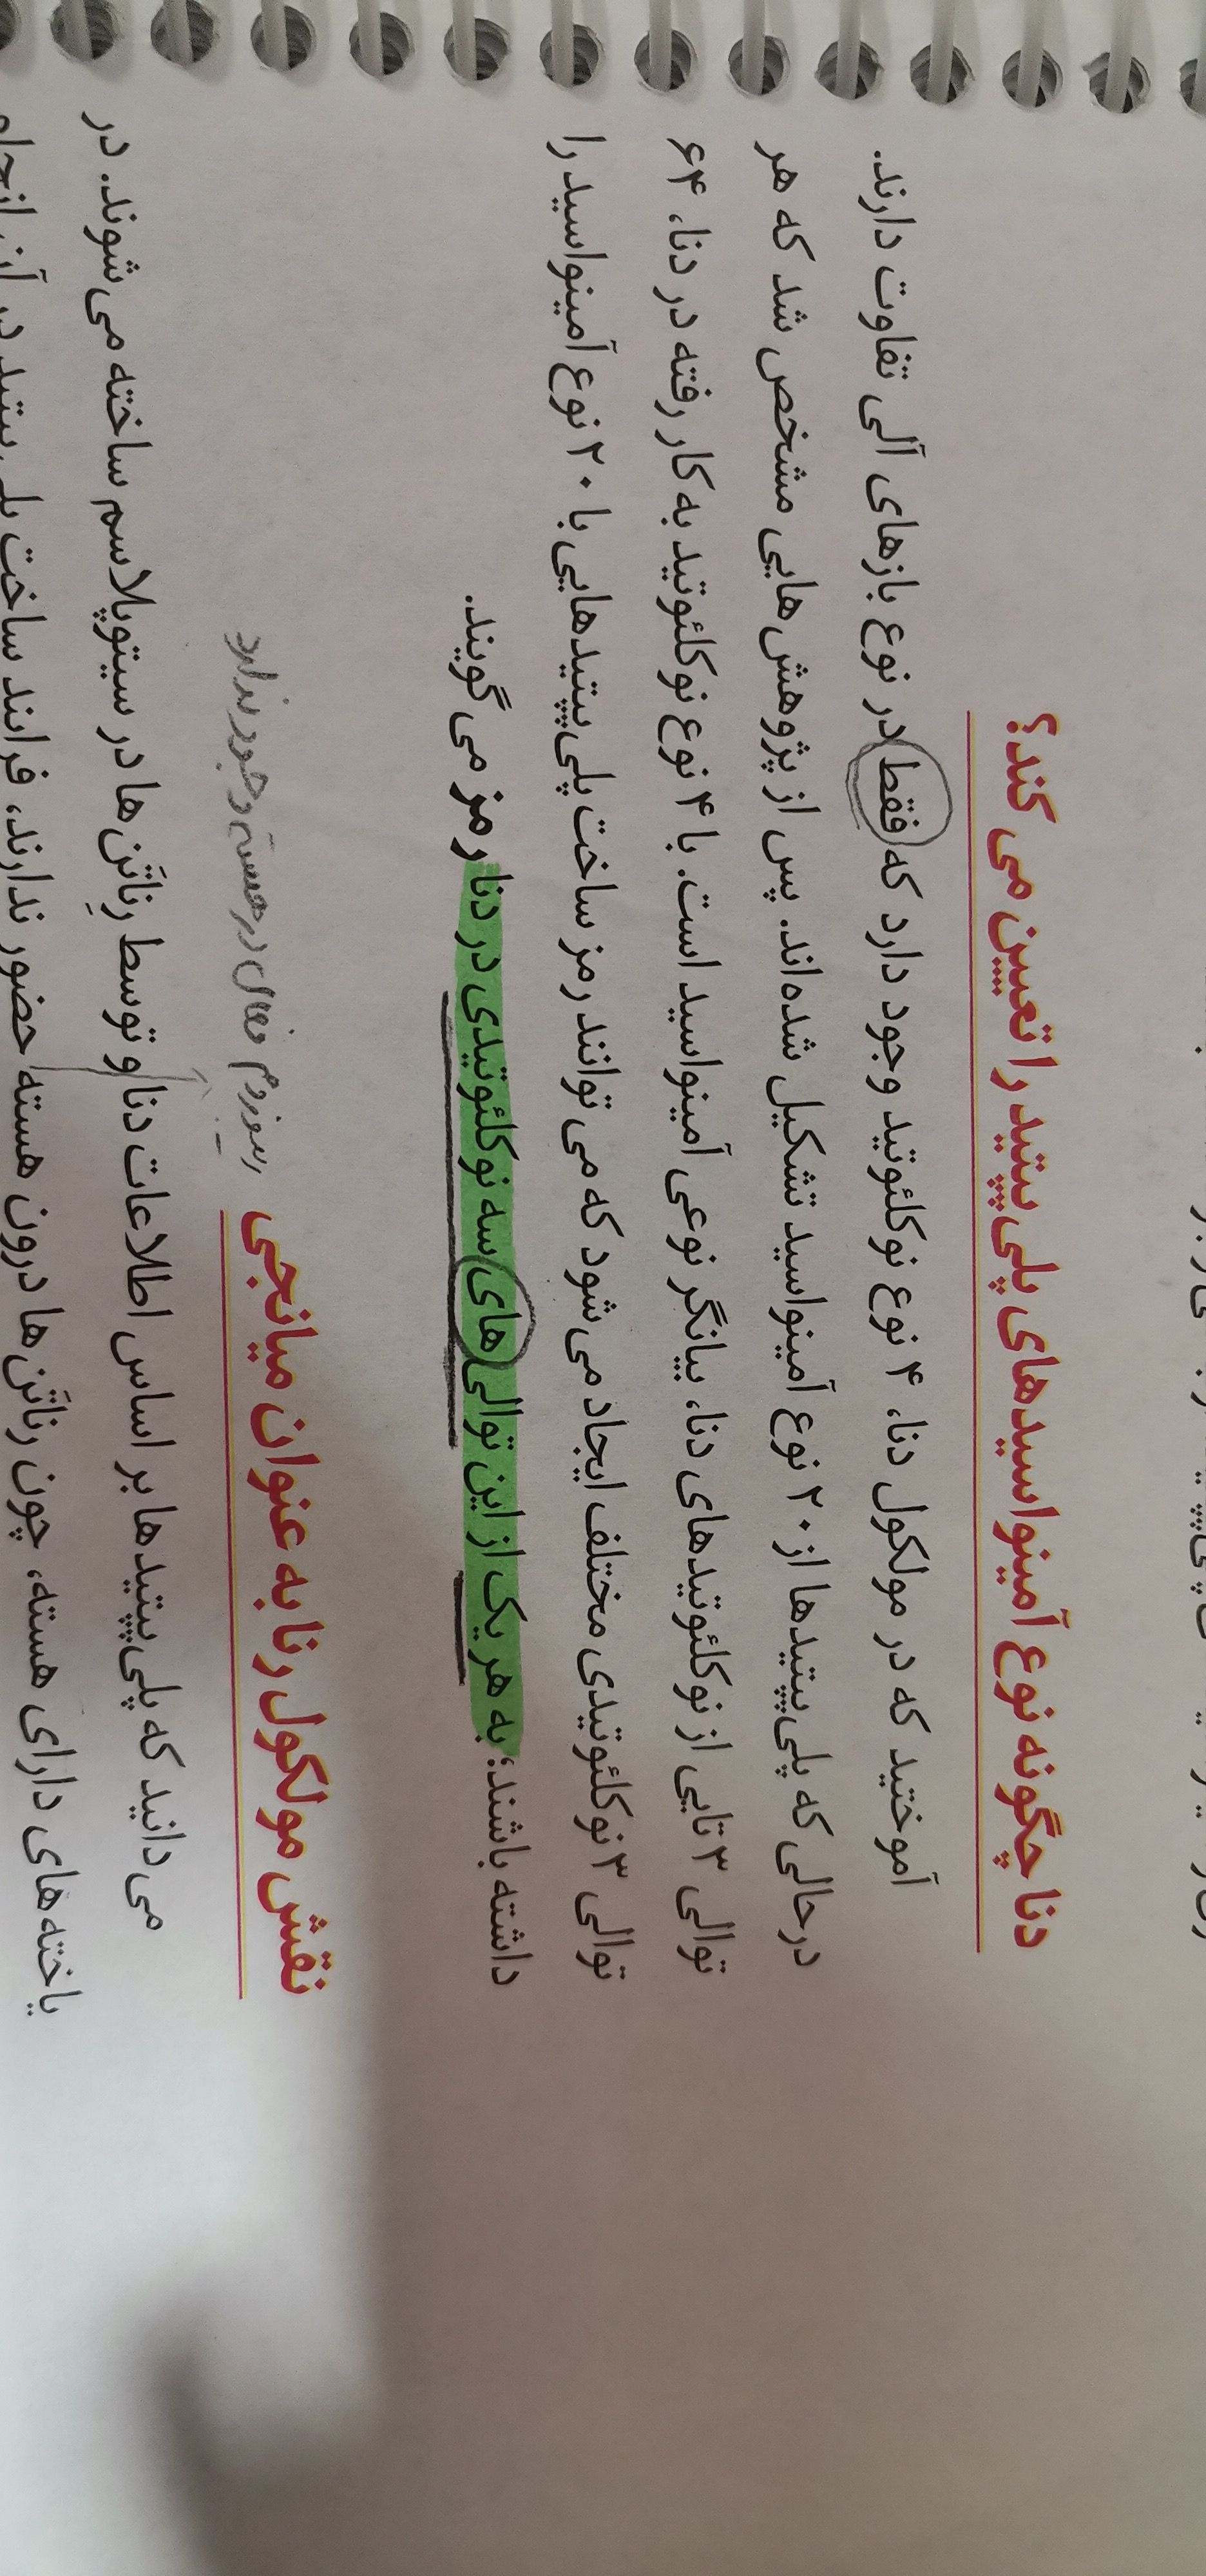 دنا چگونه نوع آمینواسیدهای پلی‌پپتید را تعیین می‌کند؟
آموختید که در مولکول دنا، ۴ نوع نوکلئوتید وجود دارد که فقط در نوع بازهای آلی تفاوت دارند.
درحالی که پلی‌پپتیدها از ۲۰ نوع آمینواسید تشکیل شده‌اند. پس از پژوهش‌هایی مشخص شد که هر
توالی ۳ تایی از نوکلئوتیدهای دنا، بیانگر نوعی آمینواسید است. با ۴ نوع نوکلئوتید به کار رفته در دنا، ۶۴
توالی ۳ نوکلئوتیدی مختلف ایجاد می‌شود که می‌توانند رمز ساخت پلی‌پپتیدهایی با ۲۰ نوع آمینواسید را
داشته باشند؛ به هر یک از این توالی‌های سه نوکلئوتیدی در دنا رمز می‌گویند.
نقش مولکول رنا به عنوان میانجی
ریبوزوم فعال در هسته وجود ندارد
می‌دانید که پلی‌پپتیدها بر اساس اطلاعات دنا و توسط رِناتَن‌ها در سیتوپلاسم ساخته می‌شوند. در
یاخته‌های دارای هسته، چون رناتَن‌ها درون هسته حضور ندارند، فرایند ساخت پلی‌پپتید در آن انجام